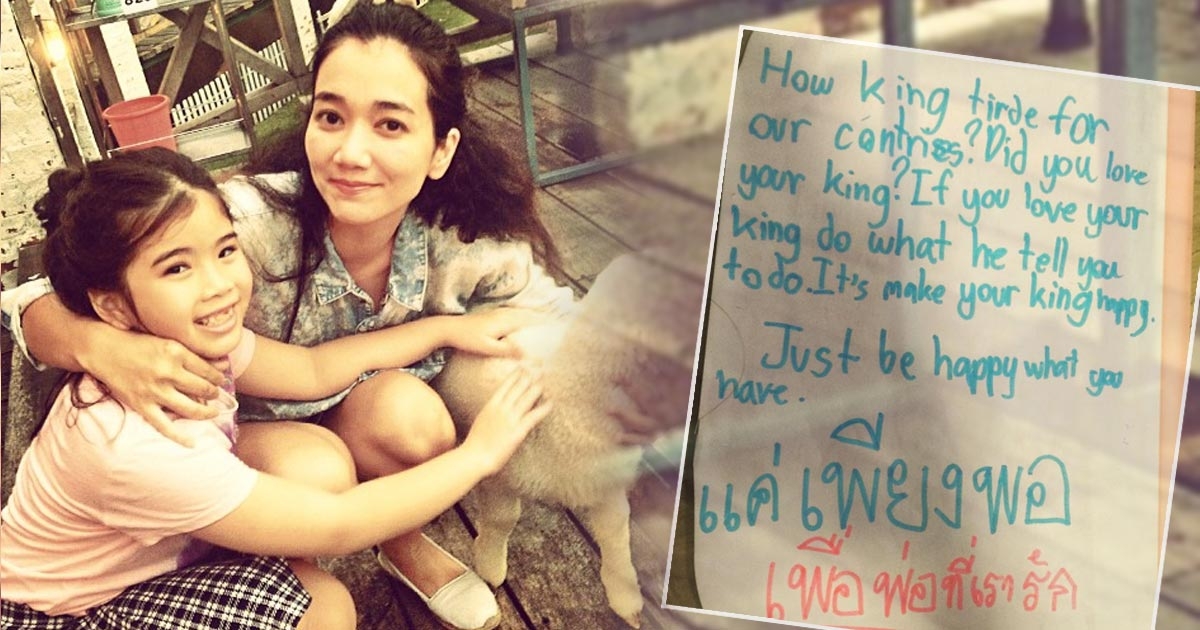 How king tirde for
our cantries? Did you love
your king? If you love your
king do what he tell you
to do. It's make your king happy.
Just be happy what you
have.
แค่ เพียงพอ
เพื่อ พ่อ ที่เรา รัก